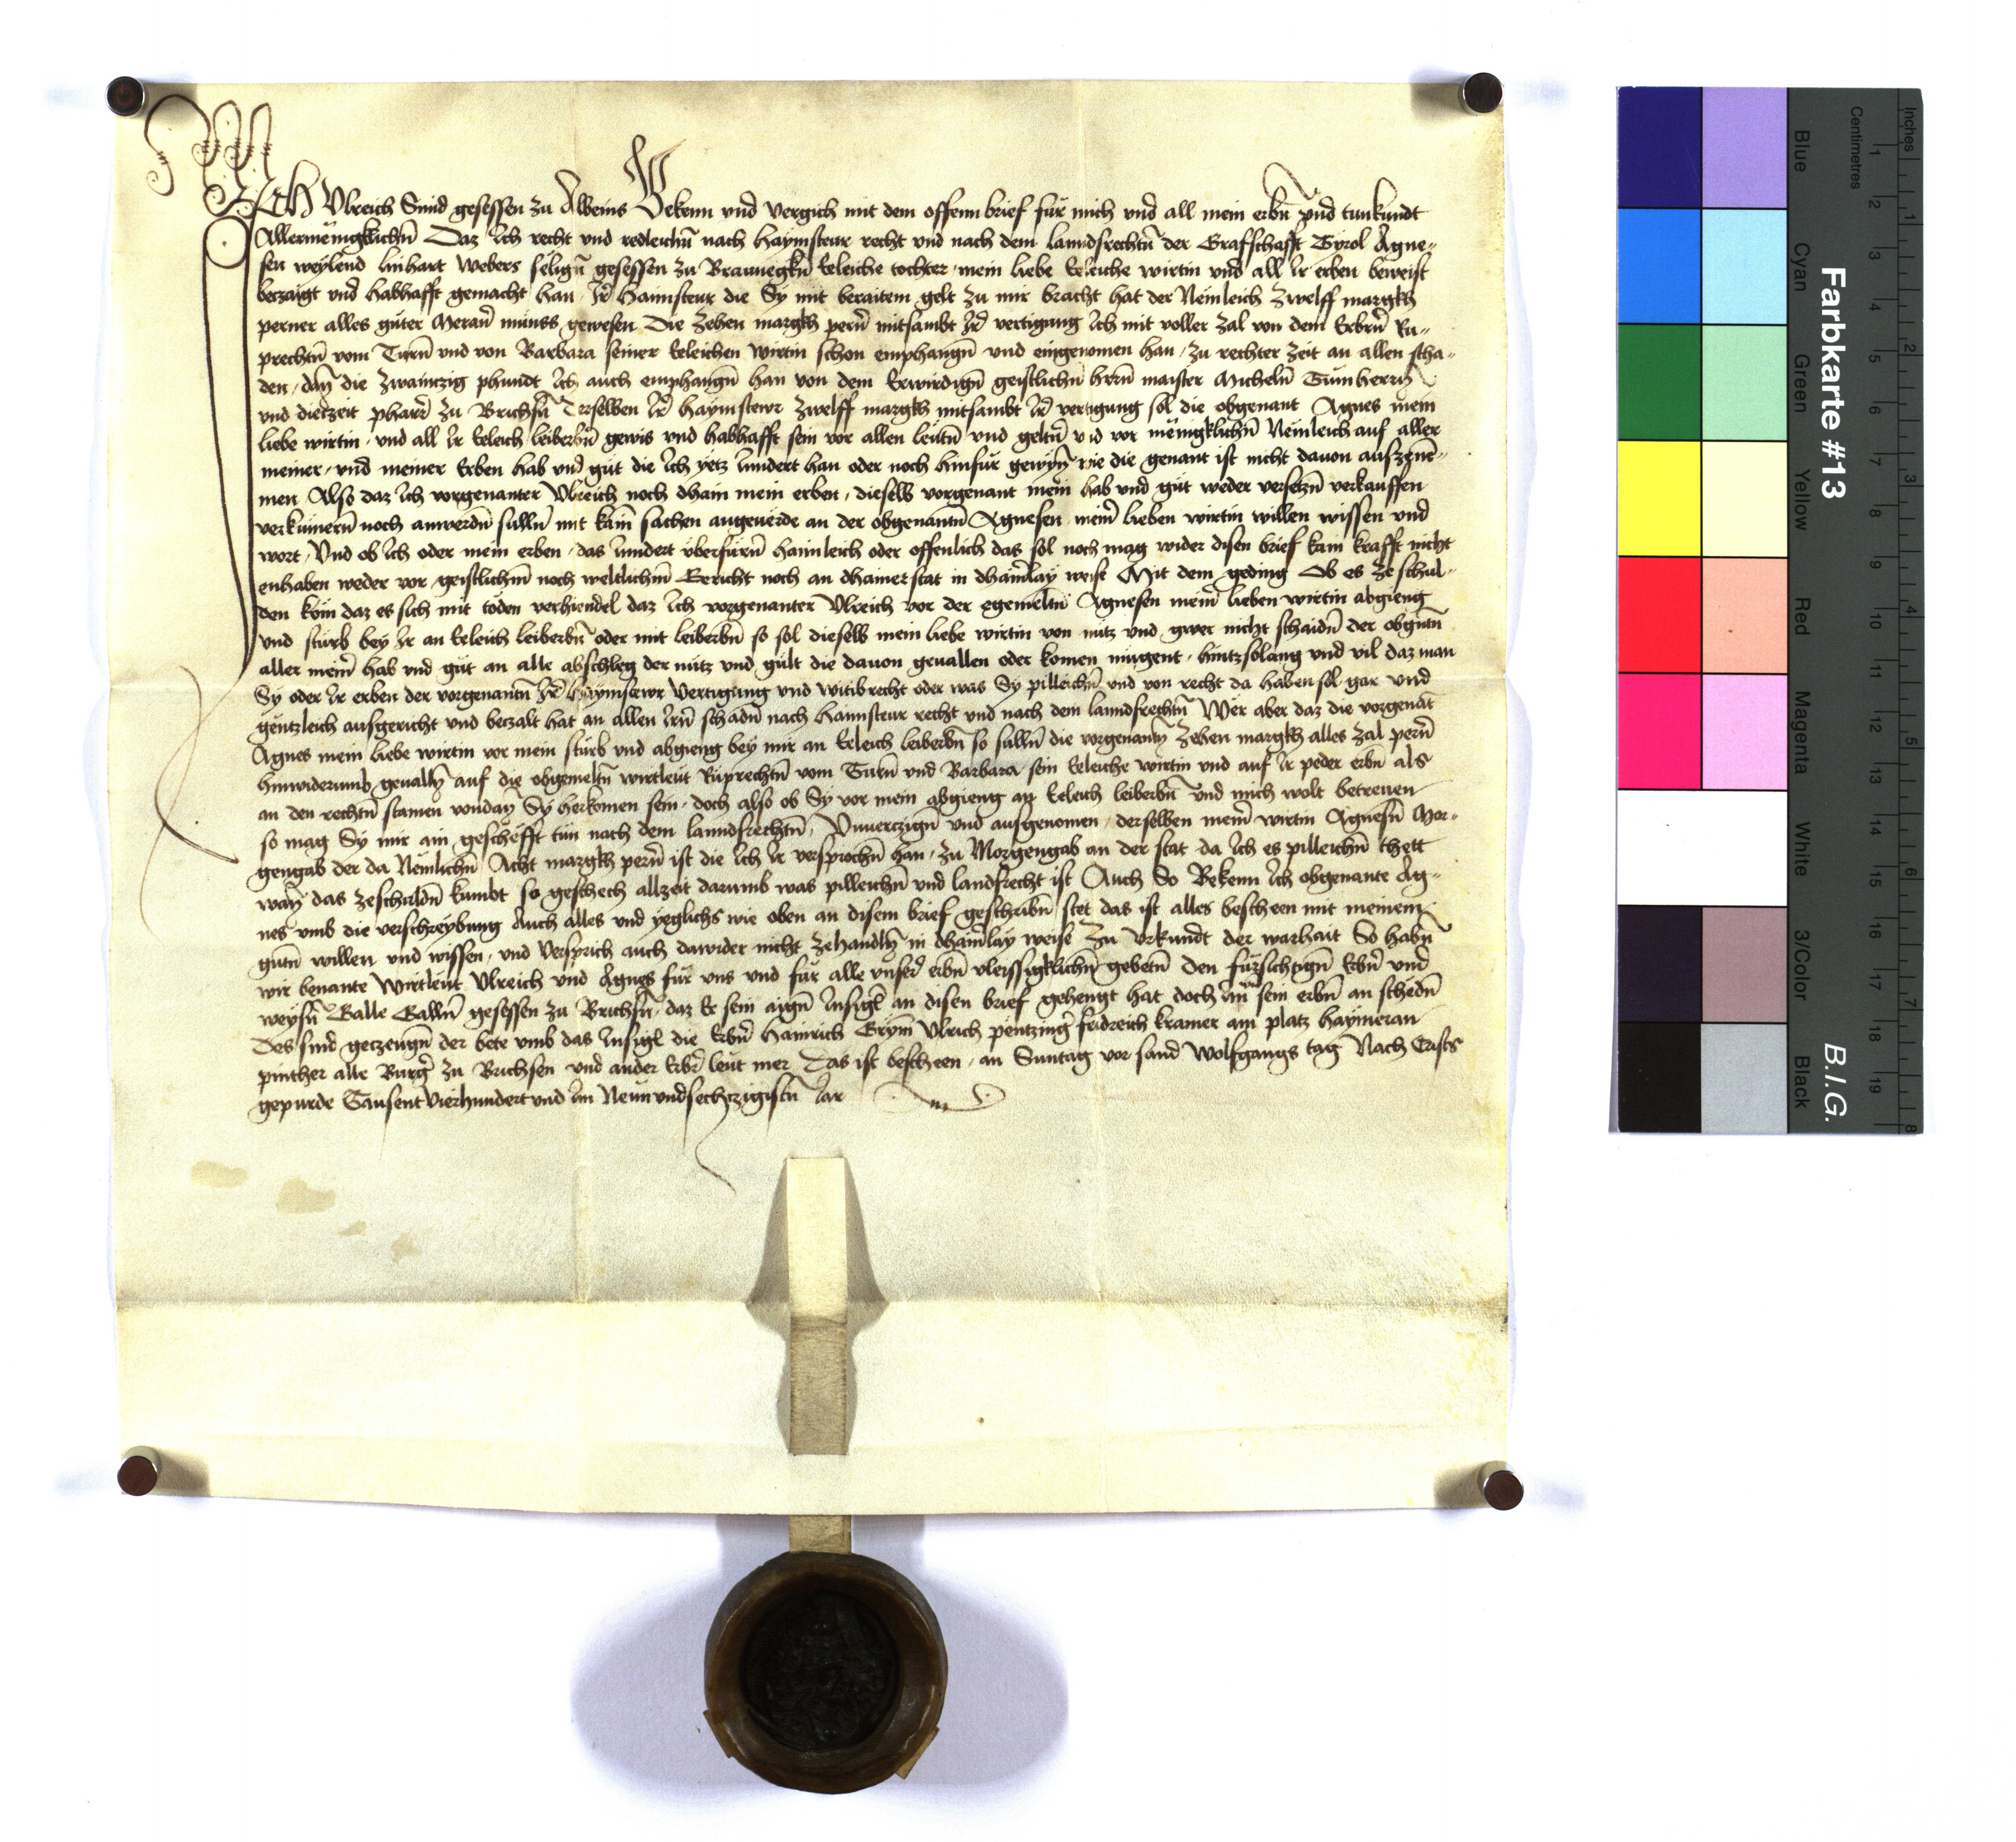 Ich Vlreich Smid gesessen zu Albeins Bekenn vnd vergich mit dem offenn brief für mich vnd all mein erbn̄ vnd tunkundt
Allermenigklichn̄ Daz Ich recht vnd redleichn̄ nach haymsteur recht vnd nach dem lanndsrechtn̄ der Grafschafft Tyrol Agne-
sen weylend linhart webers selign̄ gesessen zu Brawnegkn̄ Eeleiche tochter mein liebe Eeleiche wirtin vnd all Ir erben beweist
beczaigt vnd habhafft gemacht han Ir̄ haimsteur die Sy mit beraitem gelt zu mir bracht hat der Nemleich zwelff margkh
perner alles guter Meran̄ münss gewesen Die zehen margkh pern̄ mitsambt Ir̄ vertigung Ich mit voller zal von dem Erbrn̄ Ru-
prechtn̄ vom Turn̄ vnd von Barbara seiner Eeleichen wirtin schon emphangn̄ vnd eingenomen han zu rechter zeit an allen scha-
den dan̄ die zwainczig phundt Ich auch emphangn̄ han von dem Erwirdign̄ geistlichn̄ herrn̄ maister Micheln̄ Tumherrn̄
vnd dieczeit pharr̄ zu Brichsn̄ Derselben Ir̄ haymstewr zwelff margkh mitsambt Ir̄ vertigung sol die obgenant Agnes mein
liebe wirtin vnd all Ir Eeleich leiberbn̄ gewis vnd habhafft sein vor allen leutn̄ vnd geltn̄ vnd vor menigklichn̄ Nemleich auf aller
meiner vnd meiner Erben hab vnd gut die Ich yetz Inndert han oder noch hinfür gewyn̄ wie die genant ist nicht dauon ausczene-
men Also daz Ich vorgenanter Vlreich noch dhain mein erben dieselb vorgenant mein hab vnd gut weder versetzn̄ verkauffen
verkumern̄ noch anwerdn̄ sulln̄ mit kain̄ sachen angeuerde an der obgenantn̄ Agnesen mein̄ lieben wirtin willen wissen vnd
wort Vnd ob Ich oder mein erben das Inndert vberfurn̄ haimleich oder offenlich das sol noch mag wider disen brief kain krafft nicht
enhaben weder vor geistlichm̄ noch weltlichm̄ Gericht noch an dhainer stat in dhain̄lay weise Mit dem geding Ob es ze schul-
den kom daz es sich mit toden verhiendel daz Ich vorgenanter Vlreich vor der egemeltn̄ Agnesen mein̄ lieben wirtin abgieng
vnd sturb bey Ir an Eeleich leiberbn̄ oder mit leiberbn̄ so sol dieselb mein liebe wirtin von nutz vnd gwer nicht schaidn̄ der obgntn̄
aller mein̄ hab vnd gut an alle abschleg der nutz vnd gült die dauon geuallen oder komen mugent hintz solang vnd vil daz man
Sy oder Ir erben der vorgenantn̄ Ir̄ haymstewr vertigung vnd witibrecht oder was Sy pilleichn̄ vnd von recht da haben sol gar vnd
gentzleich ausgericht vnd beczalt hat an allen Irn̄ schadn̄ nach haimsteur recht vnd nach dem lanndsrechtn̄ Wer aber daz die vorgenāt
Agnes mein liebe wirtin vor mein sturb vnd abgieng bey mir an Eeleich leiberbn̄ so sulln̄ die vorgenantn̄ zehen margkh alles zal pern̄
hinwiderumb geualln̄ auf die obgemeltn̄ wirtleut Ruprechtn̄ vom Turn̄ vnd Barbara sein Eeleiche wirtin vnd auf Ir peder erbn̄ als
an den rechtn̄ stamen vondan̄ Sy herkomen sein doch also ob Sy vor mein abgieng an Eeleich leiberbn̄ vnd mich wolt betreuen
so mag Sy mir ain geschefft tun nach dem lanndsrechtn̄ Vnuerczign̄ vnd ausgenomen derselben mein̄ wirtin Agnesn̄ Mor-
gengab der da Nemlichn̄ Acht margkh pern̄ ist die Ich Ir versprochn̄ han zu Morgengab an der stat da Ich es pilleichn̄ thett
wan̄ das zeschuldn̄ kumbt so geschech allzeit darumb was pilleichn̄ vnd landsrecht ist Auch So Bekenn Ich obgenante Ag-
nes vmb die verschreybung Auch alles vnd yeglichs wie oben an disem brief geschribn̄ stet das ist alles bescheen mit meinem
gutn̄ willen vnd wissen vnd versprich auch dawider nicht zehandln̄ in dhain̄lay weise Zu vrkundt der warhait So habn̄
wir benante wirtleut Vlreich vnd Agnes für vns vnd für alle vnser̄ erbn̄ vleissigklichn̄ gebetn̄ den fürsichtign̄ Erbn̄ vnd
weysn̄ Galle Galln̄ gesessen zu Brichsn̄ daz Er sein aign̄ Insigl̄ an disen brief gehengt hat doch Im sein erbn̄ an schedn̄
Des sind geczeugn̄ der bete vmb das Insigl die Erbn̄ Hainrich Grym̄ Vlrich pentzinḡ fridreich kramer am platz haymeran
pinther alle Burḡ zu Brichsen vnd ander Erbr̄ leut mer Das ist bescheen an Suntag vor sand Wolfgangs tag Nach Crists
gepurde Tausent vierhundert vnd Im Neunvndsechczigistn̄ Iar
Farbkarte #13
B.I.G.
Blue Cyan Green Yellow Red Magenta White 3/Color Black
Centimetres 1 2 3 4 5 6 7 8 9 10 11 12 13 14 15 16 17 18 19
Inches 1 2 3 4 5 6 7 8